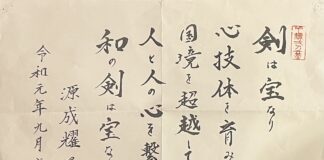 剣は宝なり
心技体を育み
国境を超越して
人と人の心を繋
和の剣は宝な
源成耀
令和元年九月